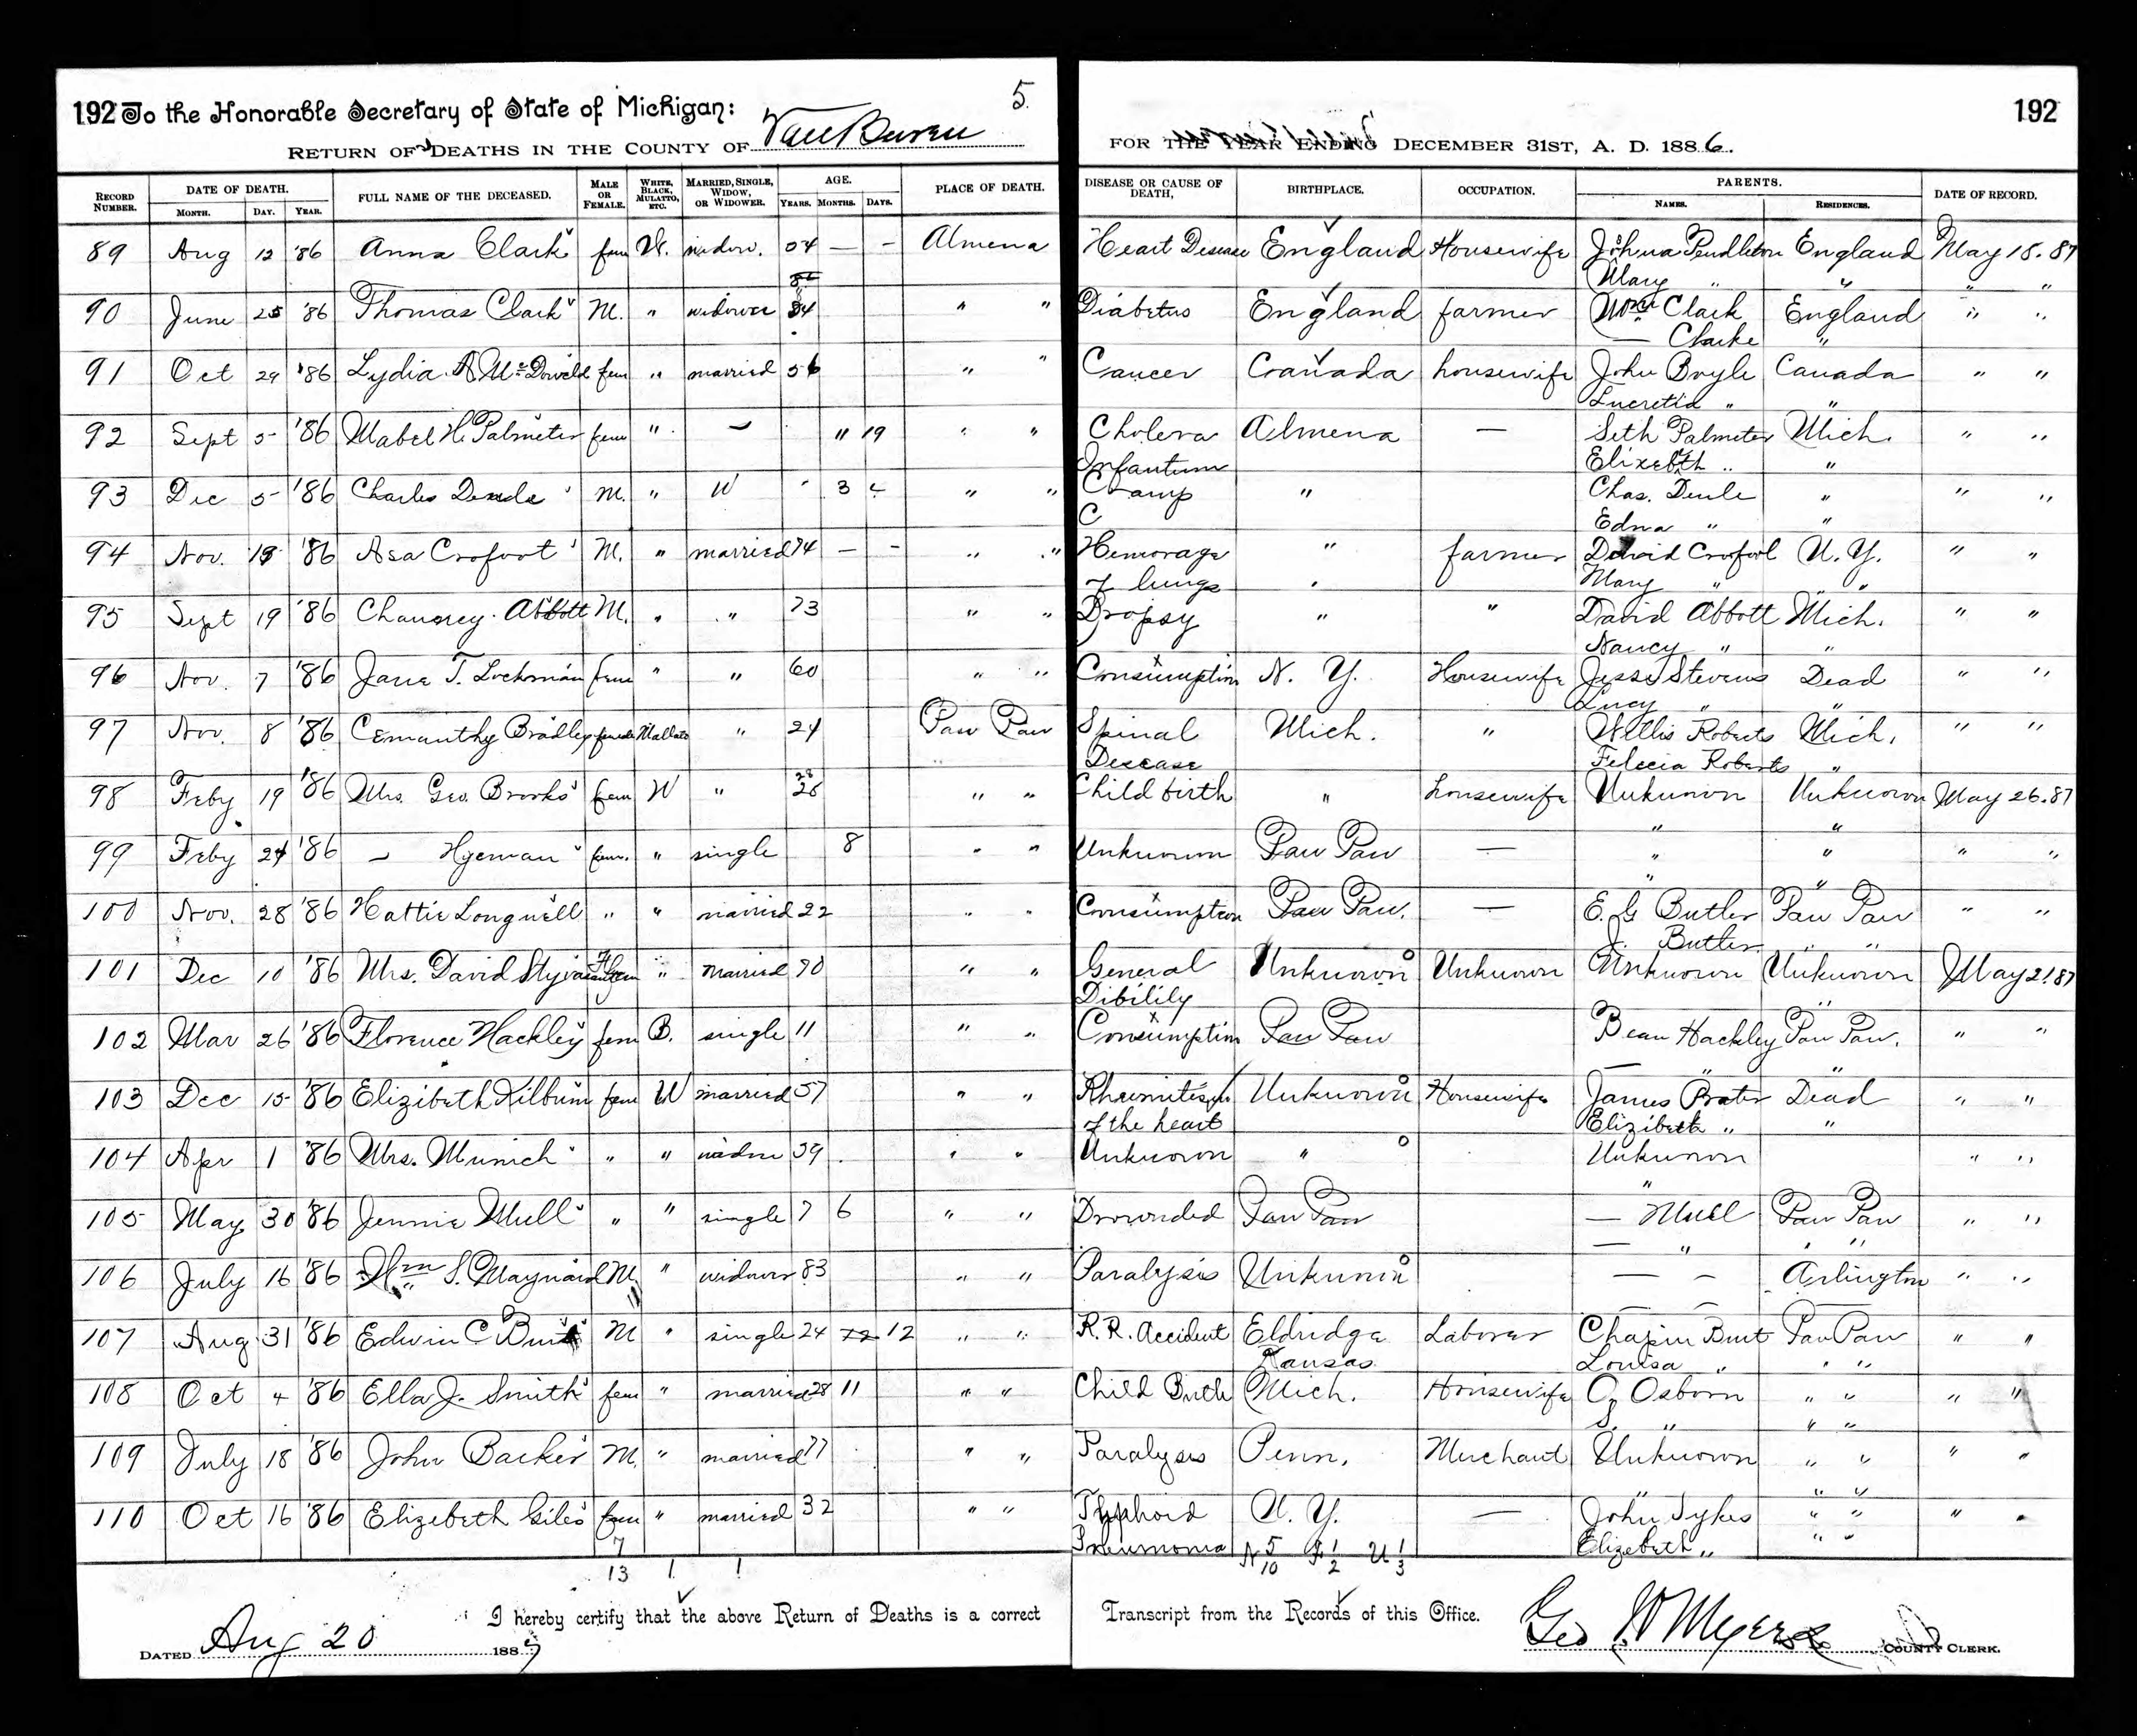 192 To the Honorable Secretary of State of Michigan: 5. 192
RETURN OF DEATHS IN THE COUNTY OF Van Buren FOR THE YEAR ENDING DECEMBER 31ST, A. D. 1886.
RECORD NUMBER. DATE OF DEATH. MONTH. DAY. YEAR. FULL NAME OF THE DECEASED. MALE OR FEMALE. WHITE, BLACK, MULATTO, ETC. MARRIED, SINGLE, WIDOW, OR WIDOWER. AGE. YEARS. MONTHS. DAYS. PLACE OF DEATH. DISEASE OR CAUSE OF DEATH, BIRTHPLACE. OCCUPATION. PARENTS. NAMES. RESIDENCES. DATE OF RECORD.
89 Aug 12 '86 Anna Clark fem W. widow. — - Almena Heart Disease England Housewife Pendleton England May 18. 87
Mary " " " "
90 June 25 '86 Thomas Clark M. " widower 84 " " Diabetus England farmer Wm Clark England " "
— Clarke "
91 Oct 29 '86 Lydia A McDowald fem " married 56 " " Cancer Canada housewife John Boyle Canada " "
Lucretia " "
92 Sept 5 '86 Mabel H. Palmeter fem " — " 19 " " Cholera Almena — Seth Palmeter Mich. " "
Infantum Elizebth " "
93 Dec 5 '86 Charles M. " W 3 " " Cramp " Chas. Deule " " "
C Edna " "
94 Nov. 19 '86 Asa Crofoot M. " married 74 — - " " Hemorage " farmer David Crofoot N. Y. " "
of lungs Mary " "
95 Sept 19 '86 Chauncey Abbott M. " " 73 " " Dropsy " " David Abbott Mich. " "
Nancy " "
96 Nov. 7 '86 Jane T. Lockman fem " " 60 " " Consumption N. Y. Housewife Jesse Stevens Dead " "
Lucy " "
97 Nov. 8 '86 Cemanthy Bradley female Mallato " 24 Paw Paw Spinal Mich. " Willis Roberts Mich. " "
Desease Felecia Roberts "
98 Feby 19 '86 Mrs. Geo. Brooks fem W " 28 28 " " Child birth " housewife Unknown Unknown May 26. 87
" "
99 Feby 24 '86 — Hyeman fem. " single 8 " " Unknown Paw Paw — " " " "
" "
100 Nov. 28 '86 Hattie Longwell " " married 22 " " Consumption Paw Paw. — E. G Butler Paw Paw " "
J. Butler " "
101 Dec 10 '86 Mrs. David fem " Married 70 " " General Unknown Unknown Unknown Unknown May 21 87
Dibilily "
102 Mar 26 '86 Florence Hackley fem B. single 11 " " Consumption Paw Paw Bean Hackley Paw Paw. " "
— " "
103 Dec 15 '86 Elizibeth Kilburn fem W married 57 " " Unknown Housewife James Prater Dead " "
of the heart Elizibeth " "
104 Apr 1 '86 Mrs. Munich " " widow 39 " " Unknown " Unknown " "
"
105 May 30 '86 Jennie Mull " " single 7 6 " " Drownded Paw Paw — Mull Paw Paw " "
— " " "
106 July 16 '86 Wm S. Maynard M. " widower 83 " " Paralysis Unknown — — Arlington " "
— —
107 Aug 31 '86 Edwin C. Burt M " single 24 12 " " R. R. Accident Eldridge Laborer Chapin Burt Paw Paw " "
Kansas. Louisa " " "
108 Oct 4 '86 Ella J. Smith fem " married 28 11 " " Child Birth Mich. Housewife O. Osborn " " " "
S. " " "
109 July 18 '86 John Backer M. " married 77 " " Paralysis Penn. Merchant Unknown " " " "
" " "
110 Oct 16 '86 Elizebeth Giles fem " married 32 " " Typhoid N. Y. — John Sykes " " " "
7 Pneumonia N 5/10 F 1/2 U 1/3 Elizebeth " " "
13 1 1
I hereby certify that the above Return of Deaths is a correct Transcript from the Records of this Office.
DATED Aug 20 1887 Geo W Myers COUNTY CLERK.